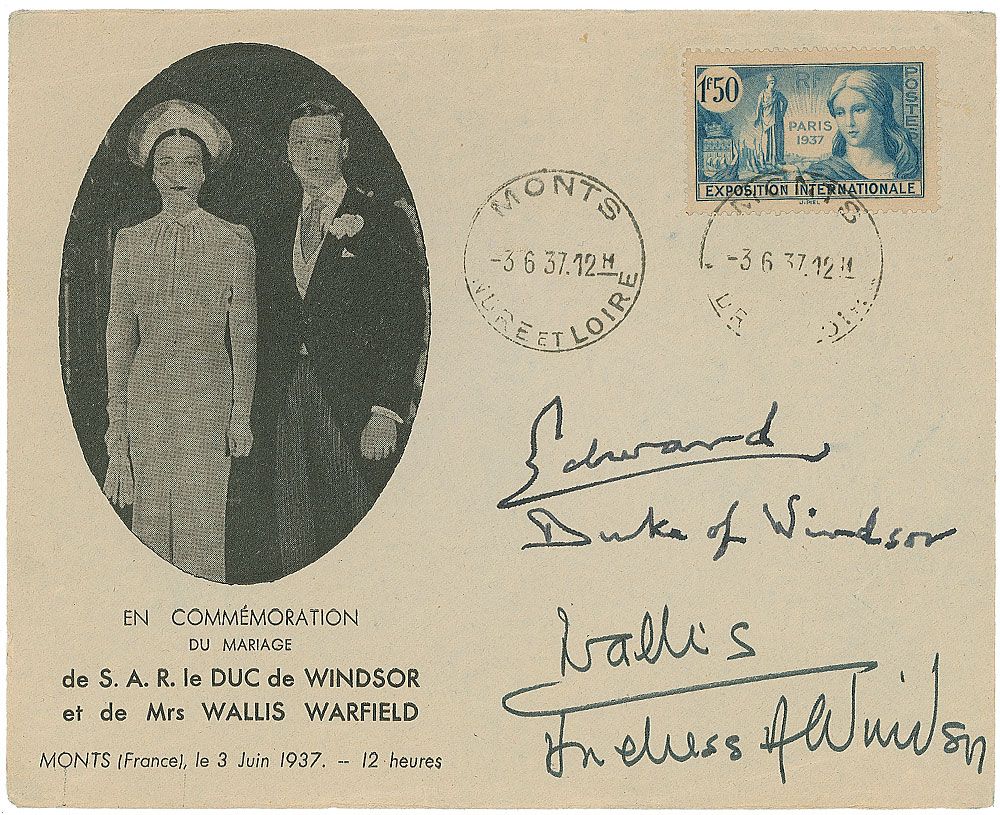 1F50
RF
POSTES
PARIS
1937
EXPOSITION INTERNATIONALE
J. PIEL
MONTS
-3 6 37. 12 H
INDRE ET LOIRE
MONTS
-3 6 37. 12 H
Edward
Duke of Windsor
Wallis
Duchess of Windsor
EN COMMÉMORATION
DU MARIAGE
de S. A. R. le DUC de WINDSOR
et de Mrs WALLIS WARFIELD
MONTS (France), le 3 Juin 1937. -- 12 heures